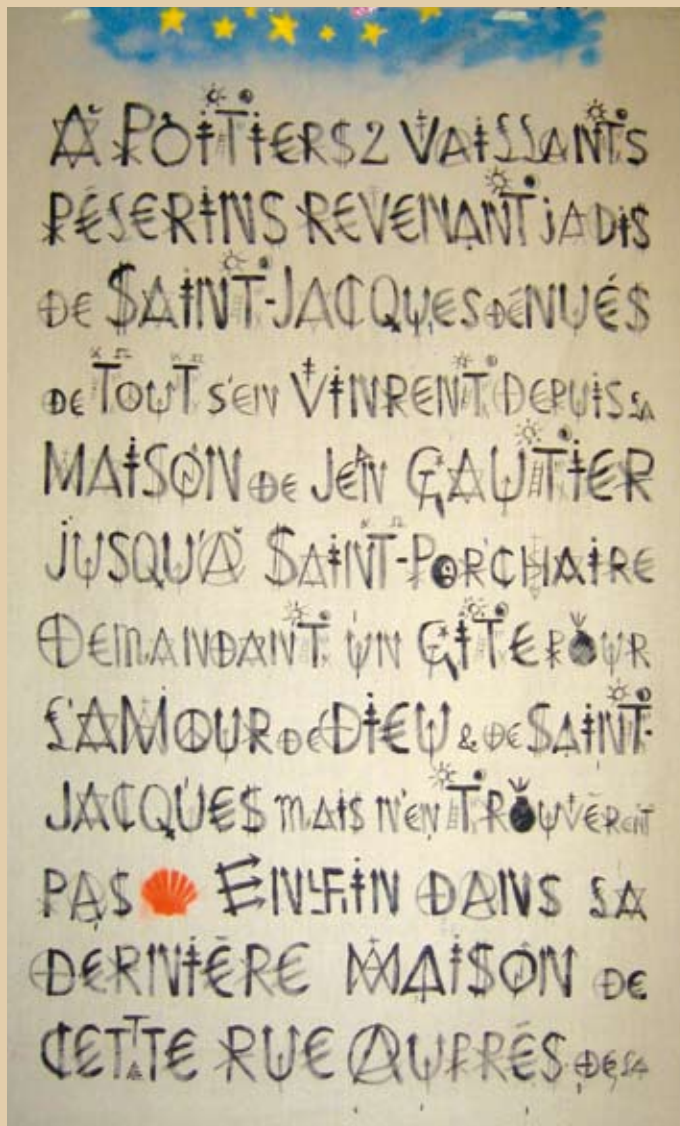 À POITIERS 2 VAILLANTS
PÉLERINS REVENANT JADIS
DE SAINT-JACQUES DÉNUÉS
DE TOUT S'EN VINRENT DEPUIS LA
MAISON DE JEN GAUTIER
JUSQU'À SAINT-PORCHAIRE
DEMANDANT UN GÎTE POUR
L'AMOUR DE DIEU & DE SAINT-
JACQUES MAIS N'EN TROUVÈRENT
PAS ENFIN DANS LA
DERNIÈRE MAISON DE
CETTE RUE AUPRÈS DE LA